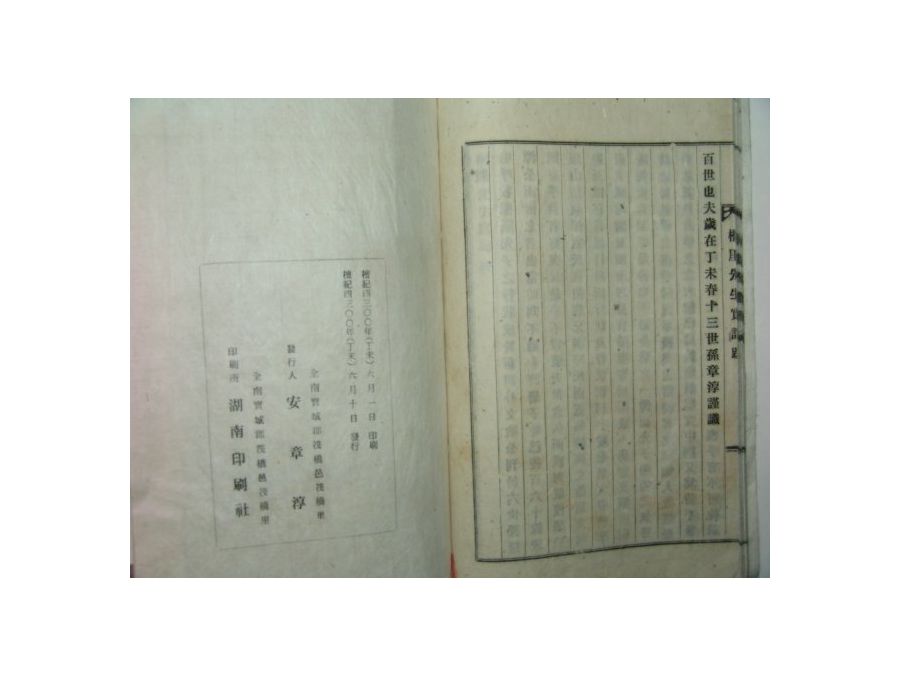 百世也夫歲在丁未春十三世孫章淳謹識
檀紀四三〇〇年(丁未)六月一日 印刷
檀紀四三〇〇年(丁未)六月十日 發行
全南寶城郡筏橋邑筏橋里
發行人 安章淳
全南寶城郡筏橋邑筏橋里
印刷所 湖南印刷社